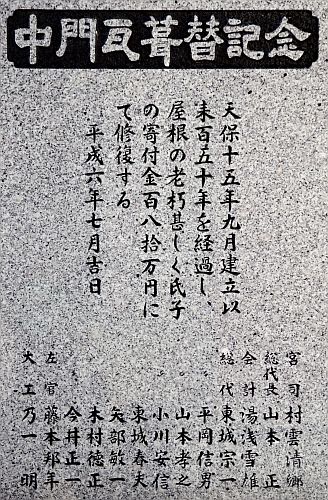 中門瓦葺替記念
天保十五年九月建立以
来百五十年を経過し、
屋根の老朽甚しく氏子
の寄付金百八拾万円に
て修復する
平成六年七月吉日
宮司 村雲清郷
総代長 山本正
会計 湯浅雪雄
総代 東城宗一
平岡信男
山本孝之
小川安信
東城春夫
矢部敏一
木村徳正
今井正一
左官 藤本邦年
大工 乃一明